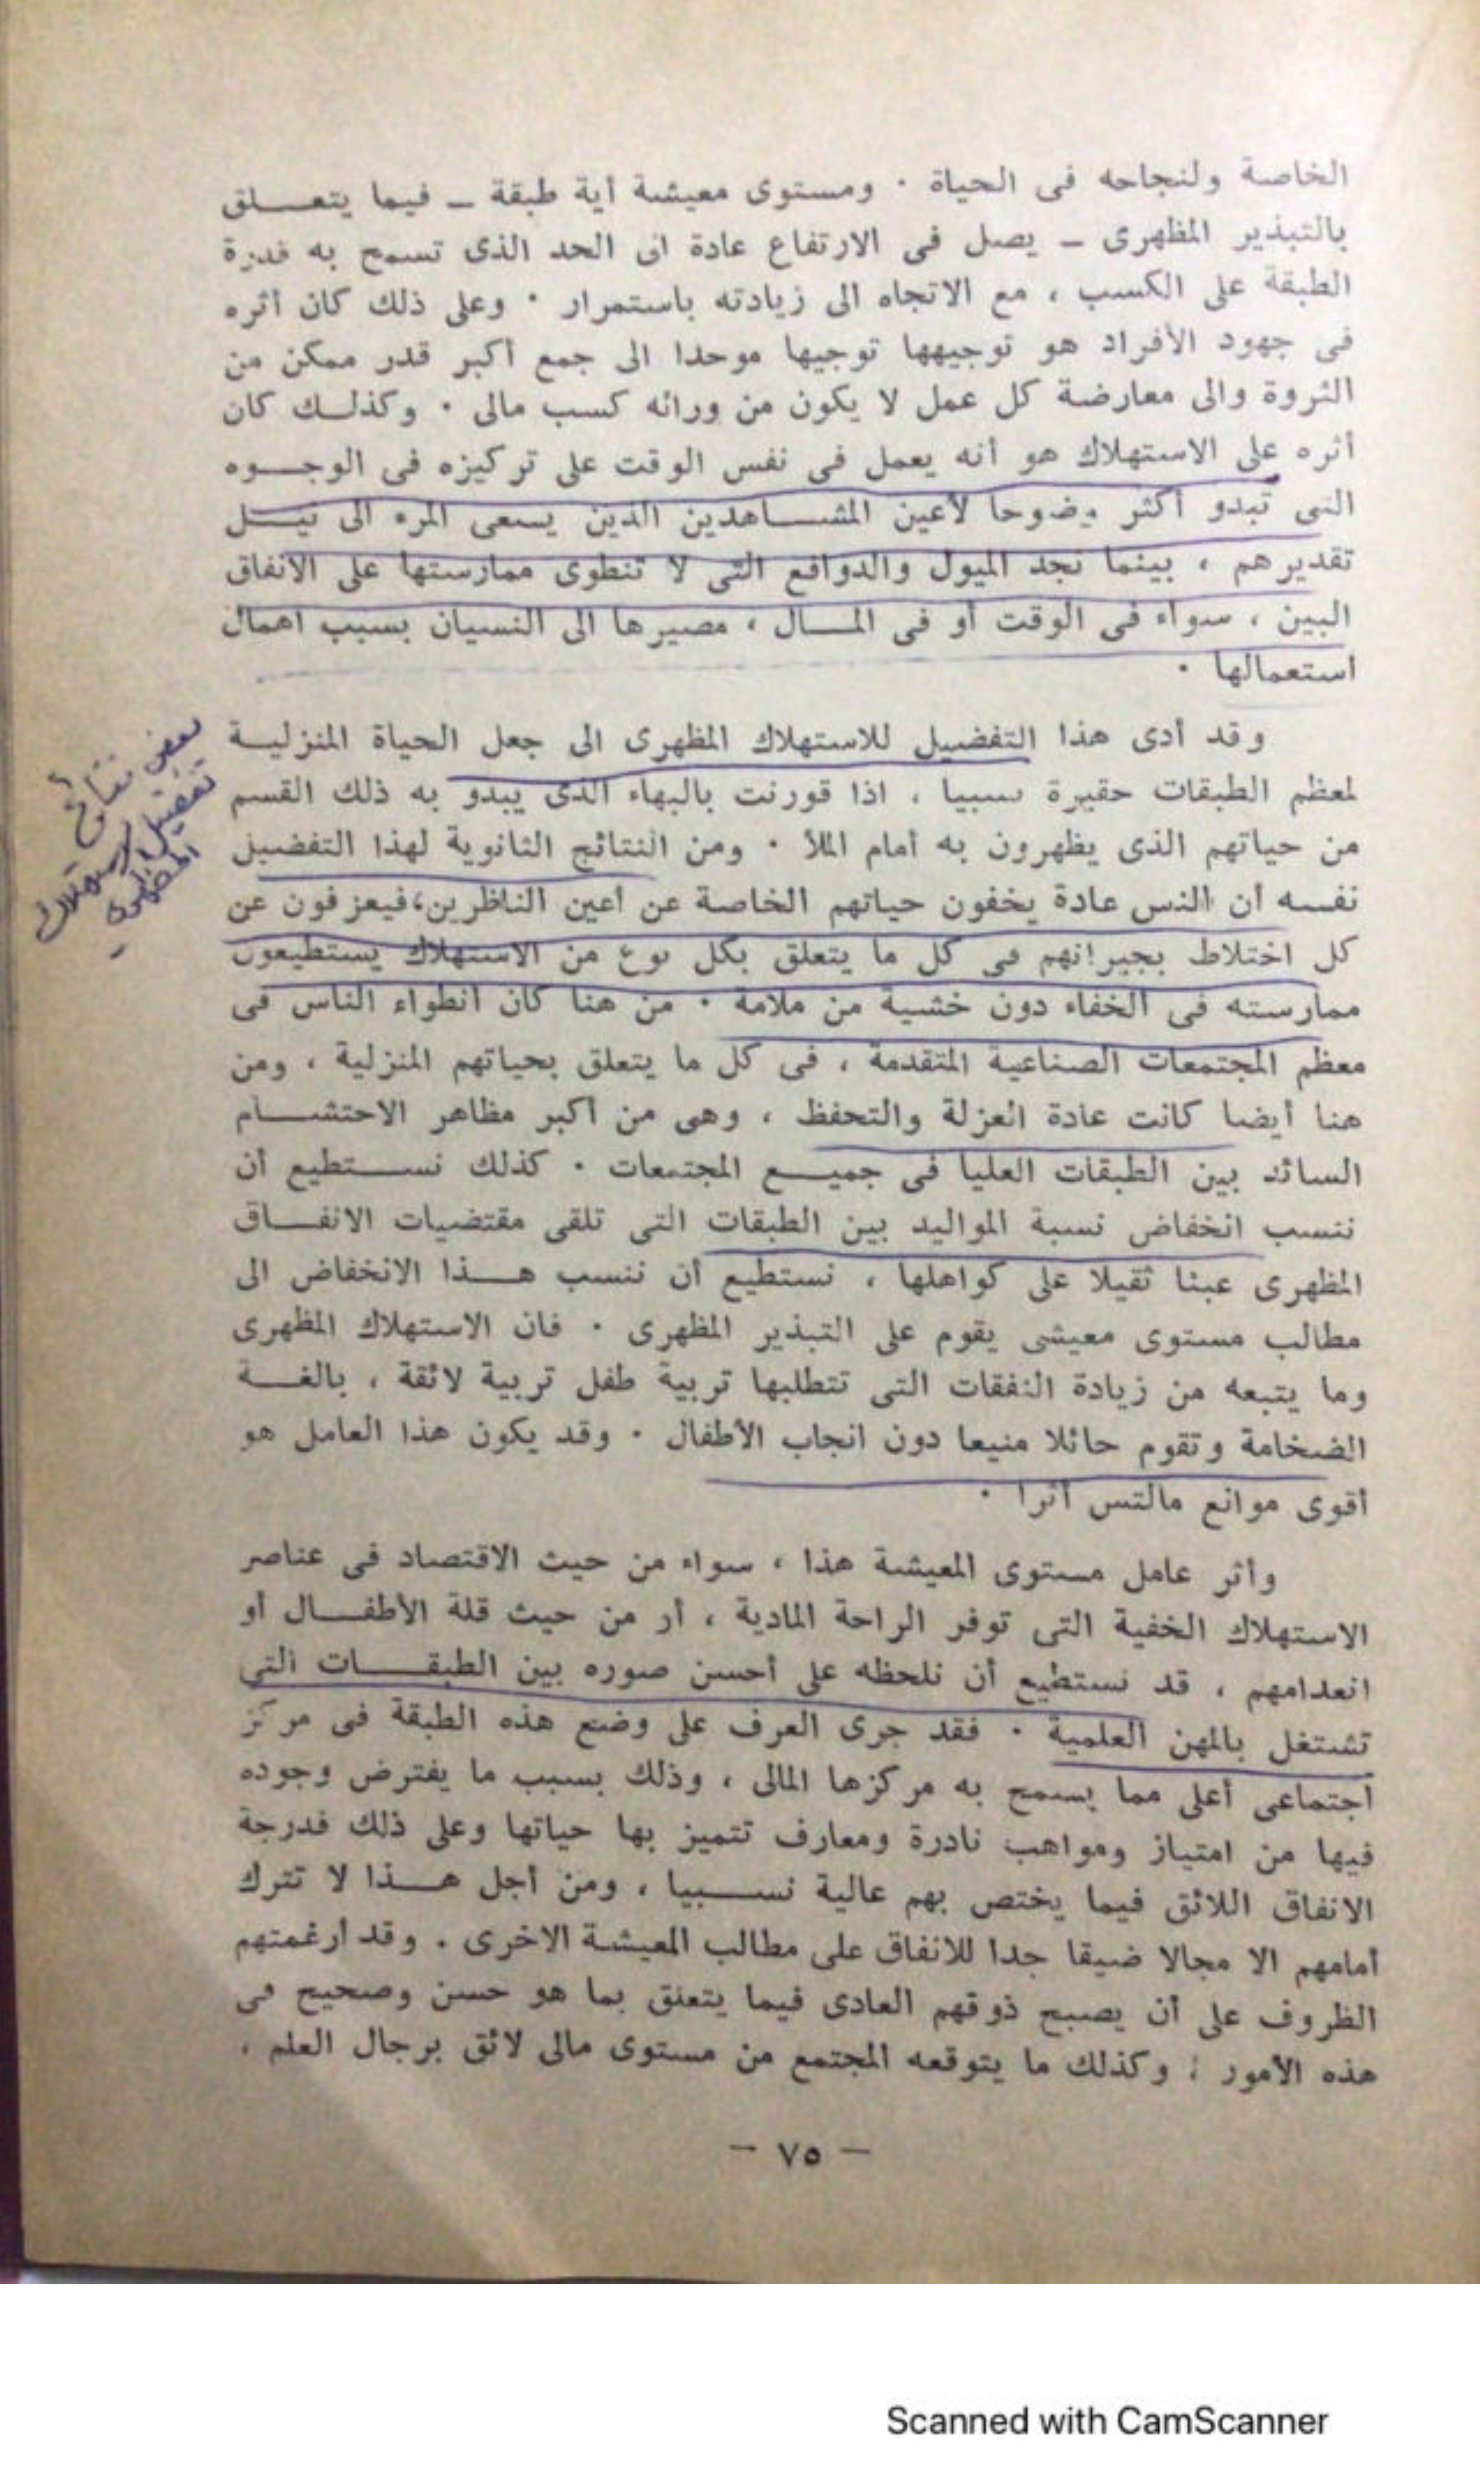 الخاصة ولنجاحه فى الحياة · ومستوى معيشة أية طبقة ـ فيما يتعــلق
بالتبذير المظهرى ـ يصل فى الارتفاع عادة الى الحد الذى تسمح به قدرة
الطبقة على الكسب ، مع الاتجاه الى زيادته باستمرار · وعلى ذلك كان أثره
فى جهود الأفراد هو توجيهها توجيها موحدا الى جمع أكبر قدر ممكن من
الثروة والى معارضة كل عمل لا يكون من ورائه كسب مالى · وكذلــك كان
أثره على الاستهلاك هو أنه يعمل فى نفس الوقت على تركيزه فى الوجــوه
التى تبدو أكثر وضوحا لأعين المشــاهدين الذين يسعى المرء الى نيــل
تقديرهم ، بينما نجد الميول والدوافع التى لا تنطوى ممارستها على الانفاق
البين ، سواء فى الوقت أو فى المــال ، مصيرها الى النسيان بسبب اهمال
استعمالها ·
وقد أدى هذا التفضيل للاستهلاك المظهرى الى جعل الحياة المنزليــة
لمعظم الطبقات حقيرة نسبيا ، اذا قورنت بالبهاء الذى يبدو به ذلك القسم
من حياتهم الذى يظهرون به أمام الملأ · ومن النتائج الثانوية لهذا التفضيل
نفسه أن الناس عادة يخفون حياتهم الخاصة عن أعين الناظرين،فيعزفون عن
كل اختلاط بجيرانهم فى كل ما يتعلق بكل نوع من الاستهلاك يستطيعون
ممارسته فى الخفاء دون خشية من ملامة · من هنا كان انطواء الناس فى
معظم المجتمعات الصناعية المتقدمة ، فى كل ما يتعلق بحياتهم المنزلية ، ومن
هنا أيضا كانت عادة العزلة والتحفظ ، وهى من أكبر مظاهر الاحتشــام
السائد بين الطبقات العليا فى جميــع المجتمعات · كذلك نســتطيع أن
ننسب انخفاض نسبة المواليد بين الطبقات التى تلقى مقتضيات الانفــاق
المظهرى عبئا ثقيلا على كواهلها ، نستطيع أن ننسب هــذا الانخفاض الى
مطالب مستوى معيشى يقوم على التبذير المظهرى · فان الاستهلاك المظهرى
وما يتبعه من زيادة النفقات التى تتطلبها تربية طفل تربية لائقة ، بالغــة
الضخامة وتقوم حائلا منيعا دون انجاب الأطفال · وقد يكون هذا العامل هو
أقوى موانع مالتس أثرا ·
وأثر عامل مستوى المعيشة هذا ، سواء من حيث الاقتصاد فى عناصر
الاستهلاك الخفية التى توفر الراحة المادية ، أو من حيث قلة الأطفــال أو
انعدامهم ، قد نستطيع أن نلحظه على أحسن صوره بين الطبقــات التى
تشتغل بالمهن العلمية · فقد جرى العرف على وضع هذه الطبقة فى مركز
اجتماعى أعلى مما يسمح به مركزها المالى ، وذلك بسبب ما يفترض وجوده
فيها من امتياز ومواهب نادرة ومعارف تتميز بها حياتها وعلى ذلك فدرجة
الانفاق اللائق فيما يختص بهم عالية نســبيا ، ومن أجل هــذا لا تترك
أمامهم الا مجالا ضيقا جدا للانفاق على مطالب المعيشة الاخرى . وقد أرغمتهم
الظروف على أن يصبح ذوقهم العادى فيما يتعلق بما هو حسن وصحيح فى
هذه الأمور ؛ وكذلك ما يتوقعه المجتمع من مستوى مالى لائق برجال العلم ،
بعض نتائج
تفضيل الاستهلاك
المظهرى
— ٧٥ —
Scanned with CamScanner